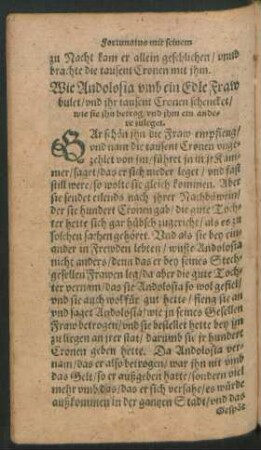 Fortunatus mit seinem
zu Nacht kam er allein geschlichen / vnnd
brachte die tausent Cronen mit jhm.
Wie Andolosia vmb ein Edle Fraw
bulet / vnd jhr tausent Cronen schencket /
wie sie jhn betrog / vnd jhm ein ande-
re zuleget.
GAr schön jhn die Fraw empfieng /
vnd nam die tausent Cronen vnge-
zehlet von jm / führet jn in jr Kam-
mer / saget / das er sich nieder leget / vnd fast
still were / so wolte sie gleich kommen. Aber
sie sendet eilends nach jhrer Nachbäwrin /
der sie hundert Cronen gab / die gute Toch-
ter hette sich gar hübsch zugericht / als es zu
solchen sachen gehöret. Vnd als sie bey ein-
ander in Frewden lebten / wuste Andolosia
nicht anders / denn das er bey seines Stech-
gesellen Frawen leg / da aber die gute Toch-
ter vernam / das sie Andolosia so wol gefiel /
vnd sie auch wol für gut hette / fieng sie an
vnd saget Andolosia / wie jn seines Gesellen
Fraw betrogen / vnd sie bestellet hette bey jm
zu ligen an jrer stat / darumb sie jr hundert
Cronen geben hette. Da Andolosia ver-
nam / das er also betrogen / war jhn nit vmb
das Gelt / so er außgeben hatte / sondern viel
mehr vmb das / das er sich versahe / es würde
außkommen in der gantzen Stadt / vnd das
Gespöt